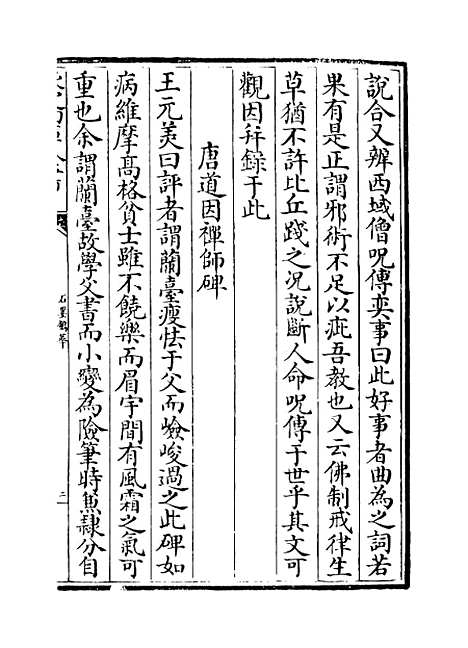 說合又辨西域僧呪傅奕事曰此好事者曲為之詞若
果有是正謂邪術不足以疵吾教也又云佛制戒律生
草猶不許比丘踐之况說斷人命呪傳于世乎其文可
觀因并錄于此
唐道因禪師碑
王元美曰評者謂蘭臺瘦怯于父而嶮峻過之此碑如
病維摩高格貧士雖不饒樂而眉宇間有風霜之氣可
重也余謂蘭臺故學父書而小變為險筆時兼隸分自
石墨鐫華
二